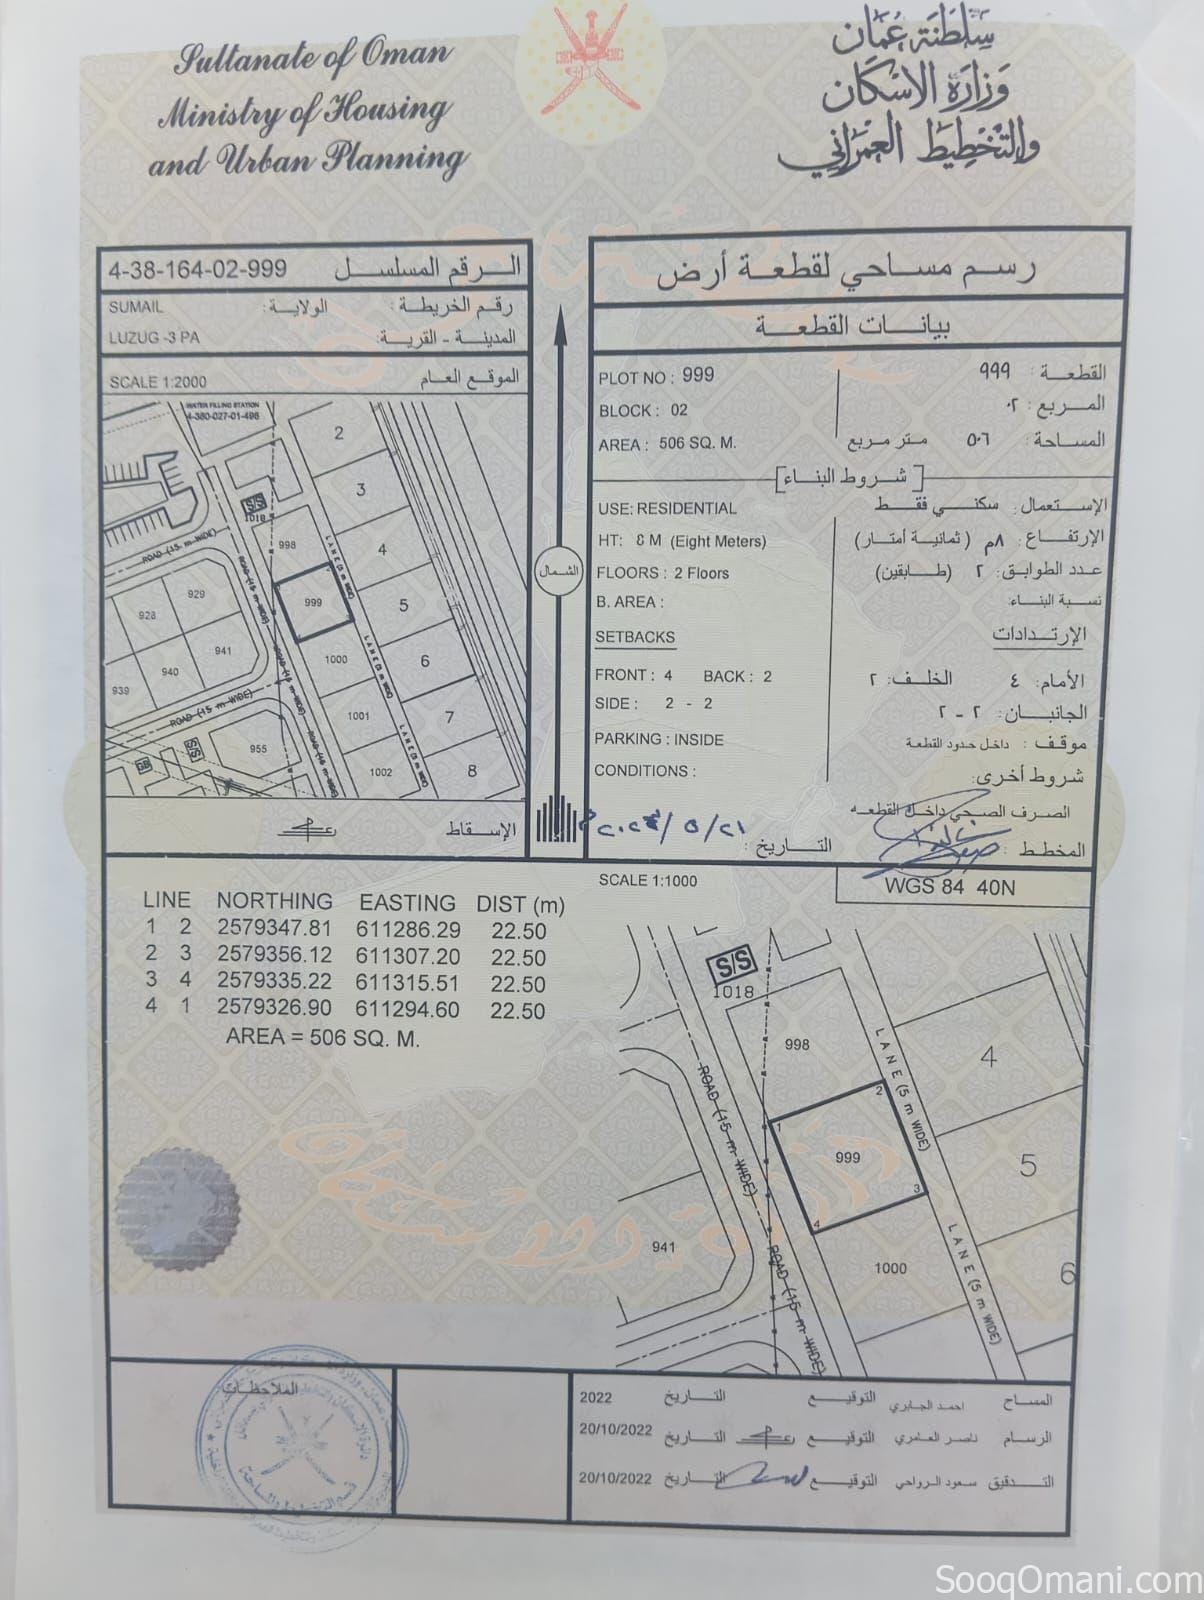 Sultanate of Oman
Ministry of Housing
and Urban Planning
سلطنة عمان
وزارة الاسكان
والتخطيط العمراني
4-38-164-02-999 الرقم المسلسل
SUMAIL الولاية: رقم الخريطة:
LUZUG -3 PA المدينة - القرية:
SCALE 1:2000 الموقع العام
WATER FILLING STATION
4-380-027-01-496
2
3
4
5
6
7
8
S/S
1018
998
999
1000
1001
1002
928
929
939
940
941
955
S/S
GB
ROAD (15 m WIDE)
ROAD (15 m WIDE)
LANE (5 m WIDE)
الإسقاط
الشمال
رسم مساحي لقطعة أرض
بيانات القطعة
PLOT NO : 999 القطعة : ٩٩٩
BLOCK : 02 المربع : ٠٢
AREA : 506 SQ. M. المساحة : ٥٠٦ متر مربع
[شروط البناء]
USE: RESIDENTIAL الإستعمال: سكني فقط
HT: 8 M (Eight Meters) الإرتفاع: ٨م (ثمانية أمتار)
FLOORS : 2 Floors عدد الطوابق: ٢ (طابقين)
B. AREA : نسبة البناء:
SETBACKS الإرتدادات
FRONT : 4 BACK : 2 الأمام: ٤ الخلف: ٢
SIDE : 2 - 2 الجانبان: ٢ - ٢
PARKING : INSIDE موقف : داخل حدود القطعة
CONDITIONS : شروط أخرى:
الصرف الصحي داخل القطعه
المخطط : التاريخ :
SCALE 1:1000
WGS 84 40N
LINE NORTHING EASTING DIST (m)
1 2 2579347.81 611286.29 22.50
2 3 2579356.12 611307.20 22.50
3 4 2579335.22 611315.51 22.50
4 1 2579326.90 611294.60 22.50
AREA = 506 SQ. M.
S/S
1018
998
4
LANE (5 m WIDE)
1
2
3
4
999
5
ROAD (15 m WIDE)
941
1000
6
ROAD (15 m WIDE)
LANE (5 m WIDE)
الملاحظات
المساح احمد الجابري التوقيع التاريخ 2022
الرسام ناصر العامري التوقيع التاريخ 20/10/2022
التدقيق سعود الرواحي التوقيع التاريخ 20/10/2022
SooqOmani.com